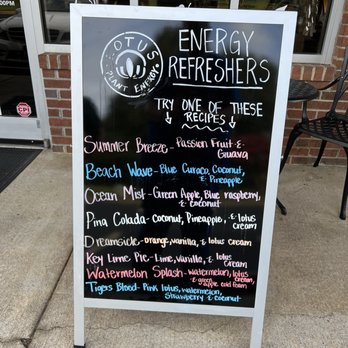 :00PM
LOTUS
PLANT ENERGY
ENERGY
REFRESHERS
TRY ONE OF THESE
RECIPES
Summer Breeze - Passion Fruit &
Guava
Beach Wave - Blue Curaco, Coconut,
& Pineapple
Ocean Mist - Green Apple, Blue raspberry,
& coconut
Pina Colada - Coconut, Pineapple, & lotus
cream
Dreamsicle - orange, vanilla, & lotus cream
Key Lime Pie - Lime, Vanilla, & lotus
cream
Watermelon Splash - watermelon, lotus
cream,
& green
apple cold foam
Tigers Blood - Pink lotus, watermelon,
Strawberry & coconut